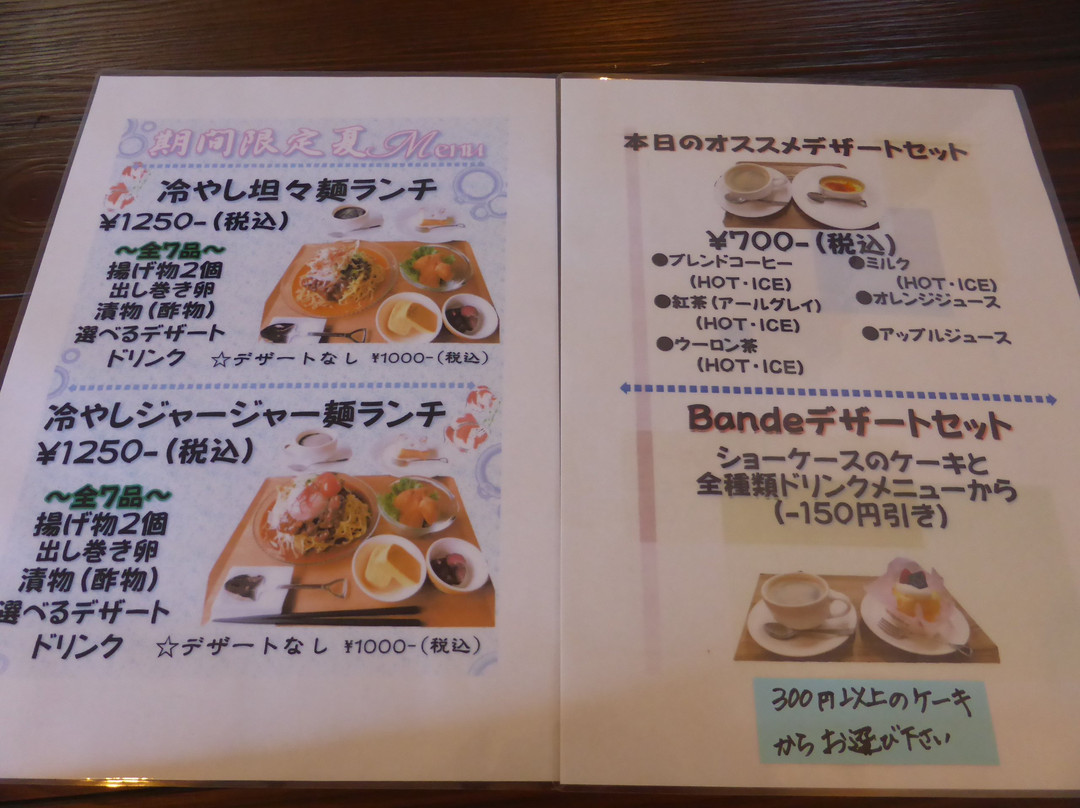 期間限定夏Menu
冷やし坦々麺ランチ
¥1250-(税込)
～全7品～
揚げ物2個
出し巻き卵
漬物(酢物)
選べるデザート
ドリンク ☆デザートなし ¥1000-(税込)
冷やしジャージャー麺ランチ
¥1250-(税込)
～全7品～
揚げ物2個
出し巻き卵
漬物(酢物)
選べるデザート
ドリンク ☆デザートなし ¥1000-(税込)
本日のオススメデザートセット
¥700-(税込)
●ブレンドコーヒー
(HOT・ICE)
●紅茶(アールグレイ)
(HOT・ICE)
●ウーロン茶
(HOT・ICE)
●ミルク
(HOT・ICE)
●オレンジジュース
●アップルジュース
Bandeデザートセット
ショーケースのケーキと
全種類ドリンクメニューから
(-150円引き)
300円以上のケーキ
からお選び下さい